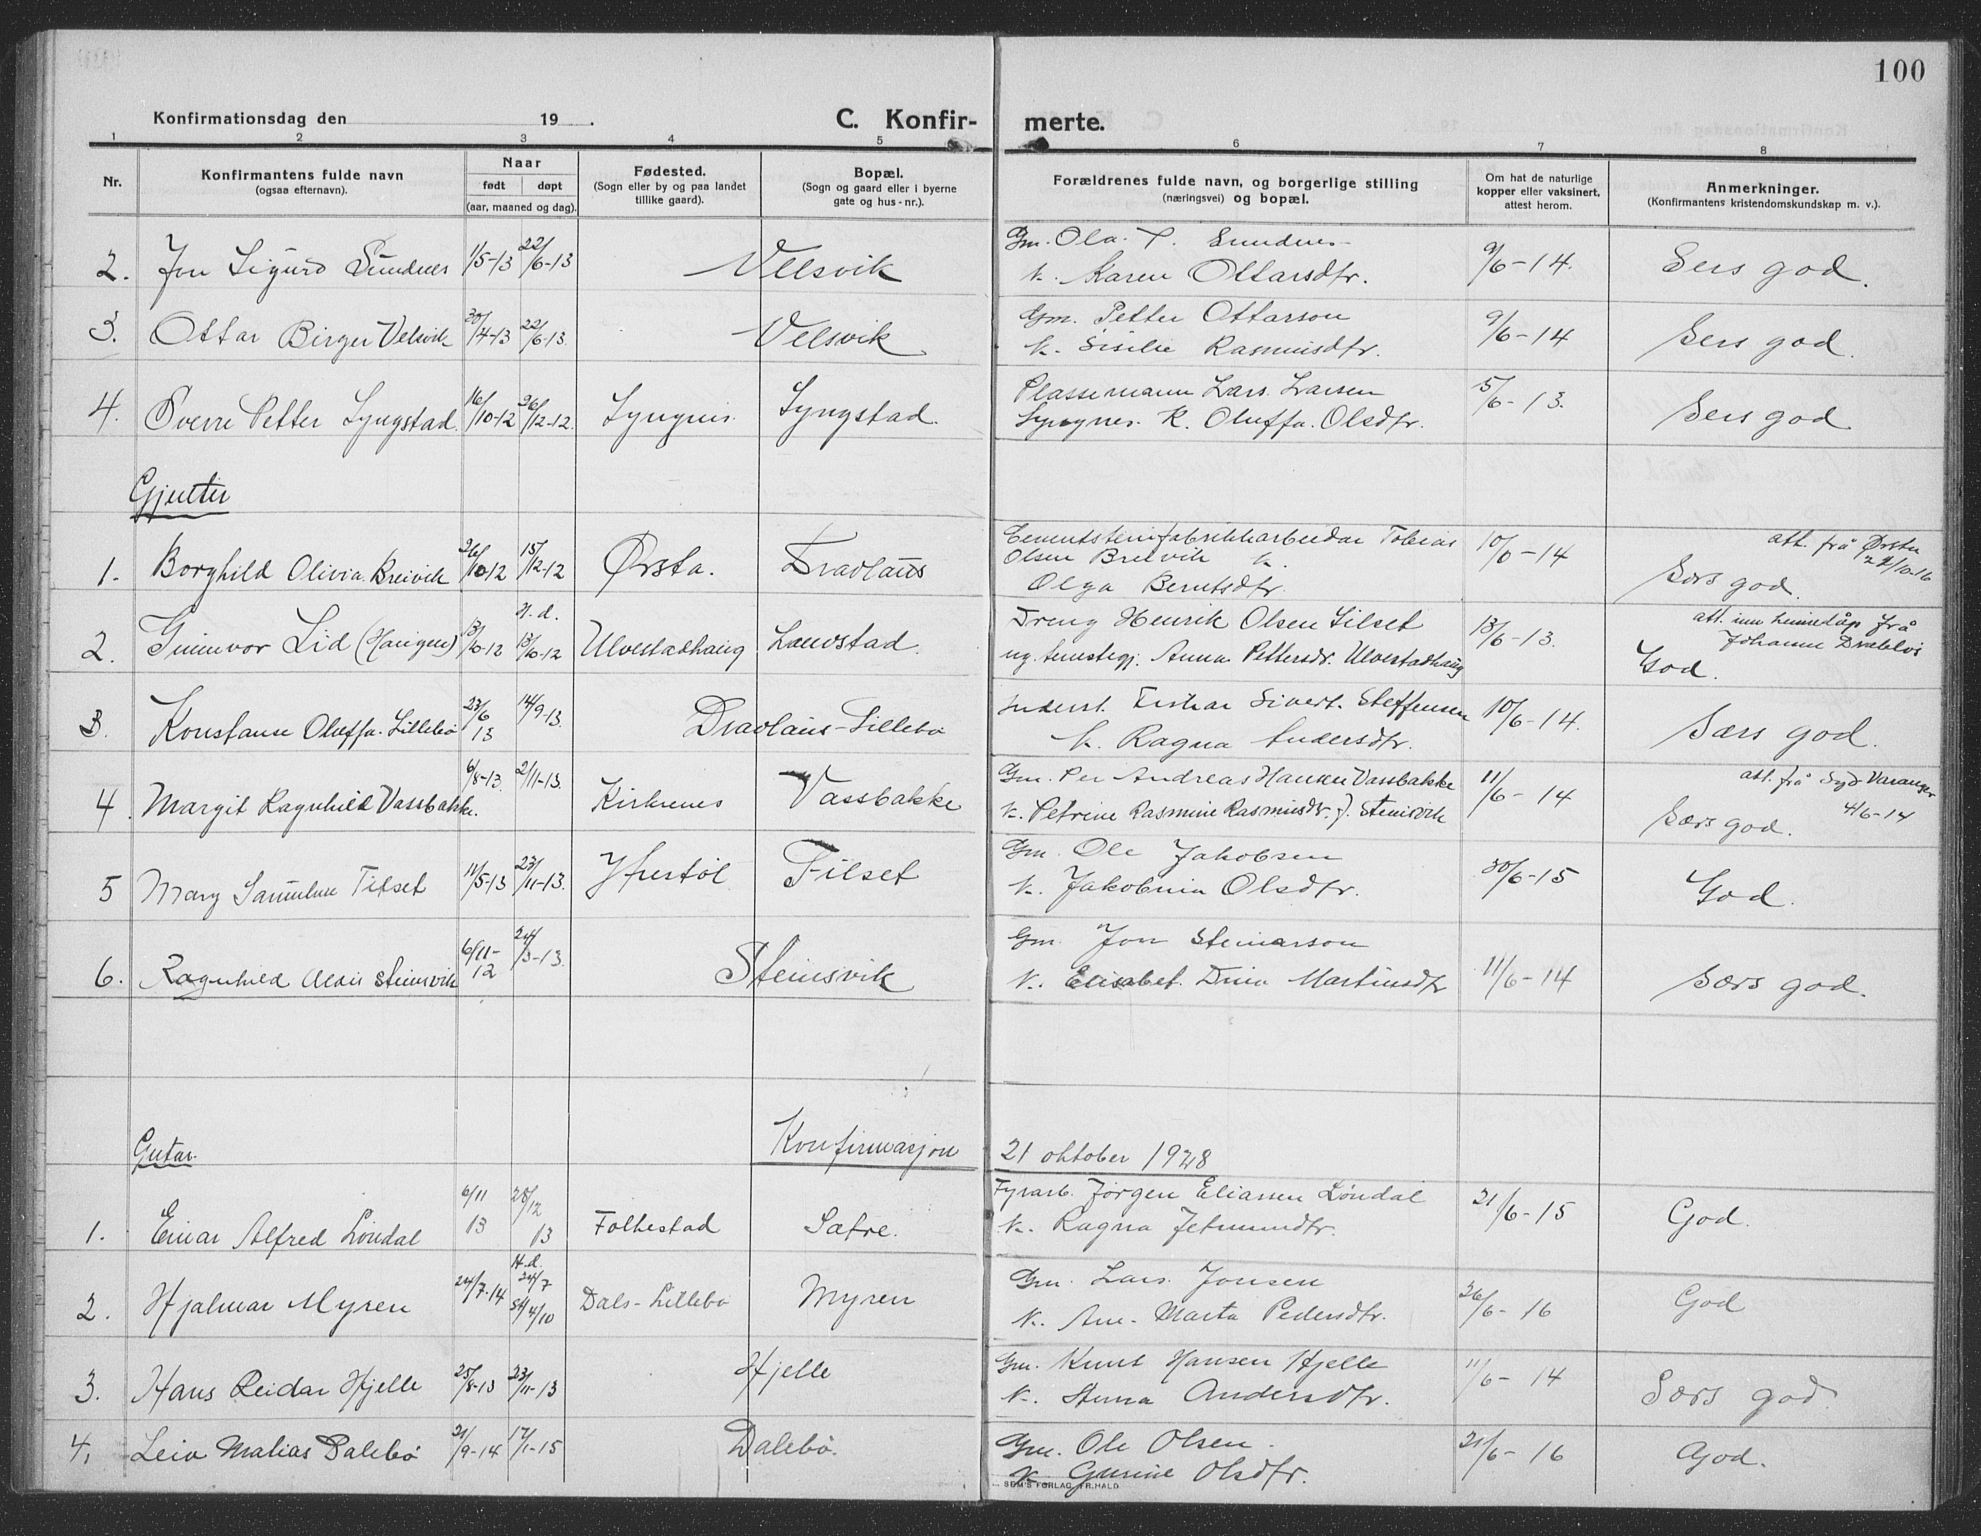 100
Konfirmationsdag den 19 .
C. Konfir- merte.
1 2 3 4 5 6 7 8
Nr.
Konfirmantens fulde navn
(ogsaa efternavn).
Naar
født døpt
(aar, maaned og dag).
Fødested.
(Sogn eller by og paa landet
tillike gaard).
Bopæl.
(Sogn og gaard eller i byerne
gate og hus-nr.).
Forældrenes fulde navn, og borgerlige stilling
(næringsvei) og bopæl.
Om hat de naturlige
kopper eller vaksinert,
attest herom.
Anmerkninger.
(Konfirmantens kristendomskundskap m. v.).
2. Jon Sigurd Sundnes 1/5-13 22/6-13 Velsvik Gm. Ola. P. Sundnes 9/6-14. Sers god.
K. Karen Ottarsdtr.
3. Ottar Birger Velsvik 30/4-13 22/6-13 Velsvik Gm. Petter Ottarson 9/6-14 Sers god.
K. Sisilie Rasmusdtr.
4. Sverre Petter Lyngstad 16/10-12 26/12-12 Lyngnes Lyngstad. Plassemann Lars Larsen 5/6-13. Sers god
Lyngnes. K. Oluffa. Olsdtr.
Gjenter
1. Borghild Olivia Breivik 26/10-12 15/12-12 Ørsta. Dravlaus Cementsteinfabrikkarbeidar Tobias 10/6-14 att. frå Ørsta
Olsen Breivik K. 24/10-16
Olga Berntsdtr. Særs god.
2. Gunnvor Lid (Haugen) 13/10-12 H.d. 13/10-12 Ulvestadhaug Lauvstad. Dreng Henrik Olsen Lilset 13/6-13. att. um heimedåp frå
Johanne Dravlos
ug. tenestegj. Anna Pettersdr. Ulvestadhaug God.
3. Konstanse Oluffa Lillebø 23/6 13 14/9-13. Dravlaus-Lillebø Inderst. Fiskar Sivert Steffensen 10/6-14. Særs god.
K. Ragna Andersdtr.
4. Margit Ragnhild Vassbakke. 6/8-13. 2/11-13. Kirkenes Vassbakke Gm. Per Andreas Hansen Vassbakke 11/6-14 att. frå Syd Varanger
4/6-14
K. Petrine Rasmine Rasmusdr. f. Steinsvik Særs god.
5 Mary Tilset 11/5-13 23/11-13. Yttrestøl Tilset Gm. Ole Jakobsen 30/6-15 God.
K. Jakobina Olsdtr.
6. Ragnhild Steinsvik 6/11-12 24/3-13. Steinsvik Gm. Jon Steinarson 11/6-14 Særs god.
K. Elisabet. Dina Martinsdtr
Gutar. Konfirmasjon 21 oktober 1928
1. Einar Alfred Løndal 6/11 13 28/12 13 Folkestad Sætre. Fyrarb. Jørgen Eliassen Løndal 21/6-15 God.
K. Ragna Jetmundtr.
2. Hjalmar Myren 24/7-14 H.d. 24/7 St 4/10 Dals-Lillebø Myren Gm. Lars Jonsen 26/6-16 God
K. Ane-Marta Pedersdtr.
3. Hans Reidar Hjelle 25/8-13 23/11-13 Hjelle Gm. Knut Hansen Hjelle 11/6-14 Særs god
K. Anna Andersdtr.
4. Leiv Matias Dalebø 21/9-14 17/1-15 Dalebø. Gm. Ole Olsen. 21/6-16 God.
K. Gurine Olsdtr.
SEM'S FORLAG, FR. HALD